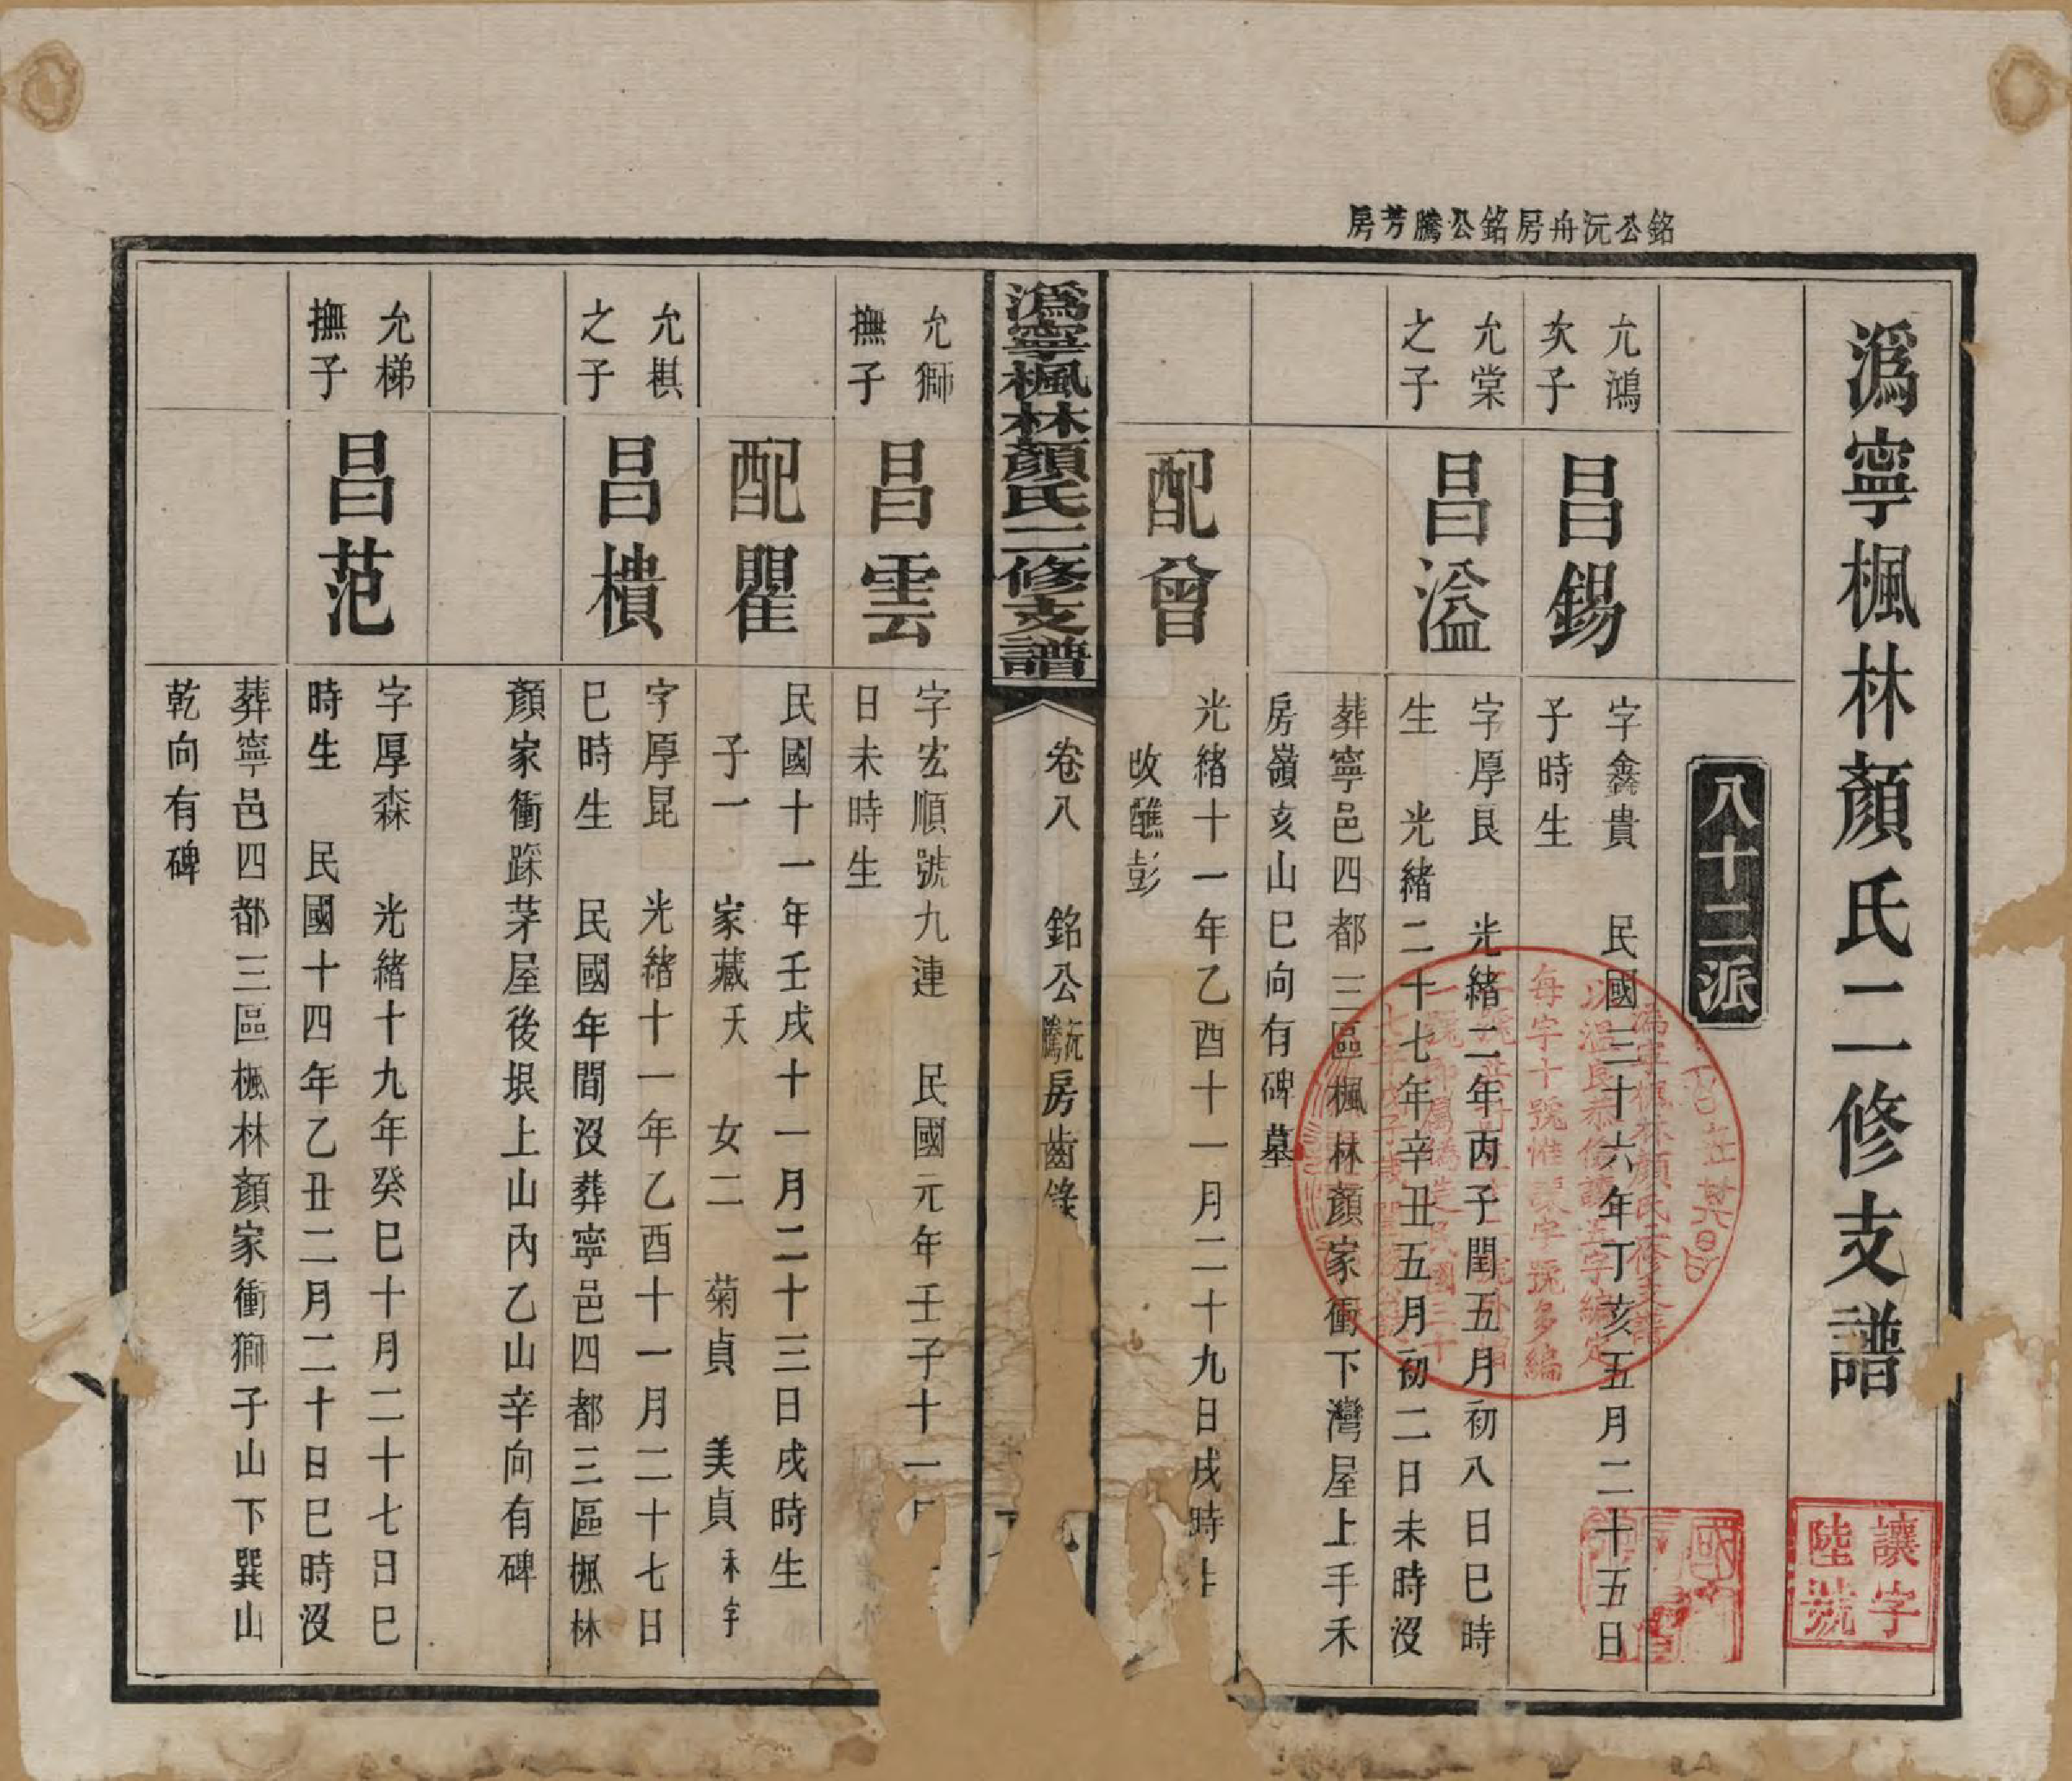 銘公沅舟房銘公騰芳房
溈寧楓林顏氏二修支譜
讓字
陸號
八十二派
允鴻
次子
昌錫
字鑫貴　民國三十六年丁亥五月二十五日
子時生
允棠
之子
昌溢
字厚良　光緒二年丙子閏五月初八日巳時
生　光緒二十七年辛丑五月初二日未時沒
葬寧邑四都三區楓林顏家衝下灣屋上手禾
房嶺亥山巳向有碑墓
配曾
光緒十一年乙酉十一月二十九日戌時生
改醮彭
溈寧楓林顏氏二修支譜
卷八　銘公沅騰房齒錄
允獅
撫子
昌雲
字宏順號九連　民國元年壬子十一月
日未時生
配瞿
民國十一年壬戌十一月二十三日戌時生
子一　家藏夭　女二　菊貞　美貞未字
允棋
之子
昌樻
字厚昆　光緒十一年乙酉十一月二十七日
巳時生　民國年間沒葬寧邑四都三區楓林
顏家衝踩茅屋後垠上山內乙山辛向有碑
允梯
撫子
昌范
字厚森　光緒十九年癸巳十月二十七日巳
時生　民國十四年乙丑二月二十日巳時沒
葬寧邑四都三區楓林顏家衝獅子山下巽山
乾向有碑